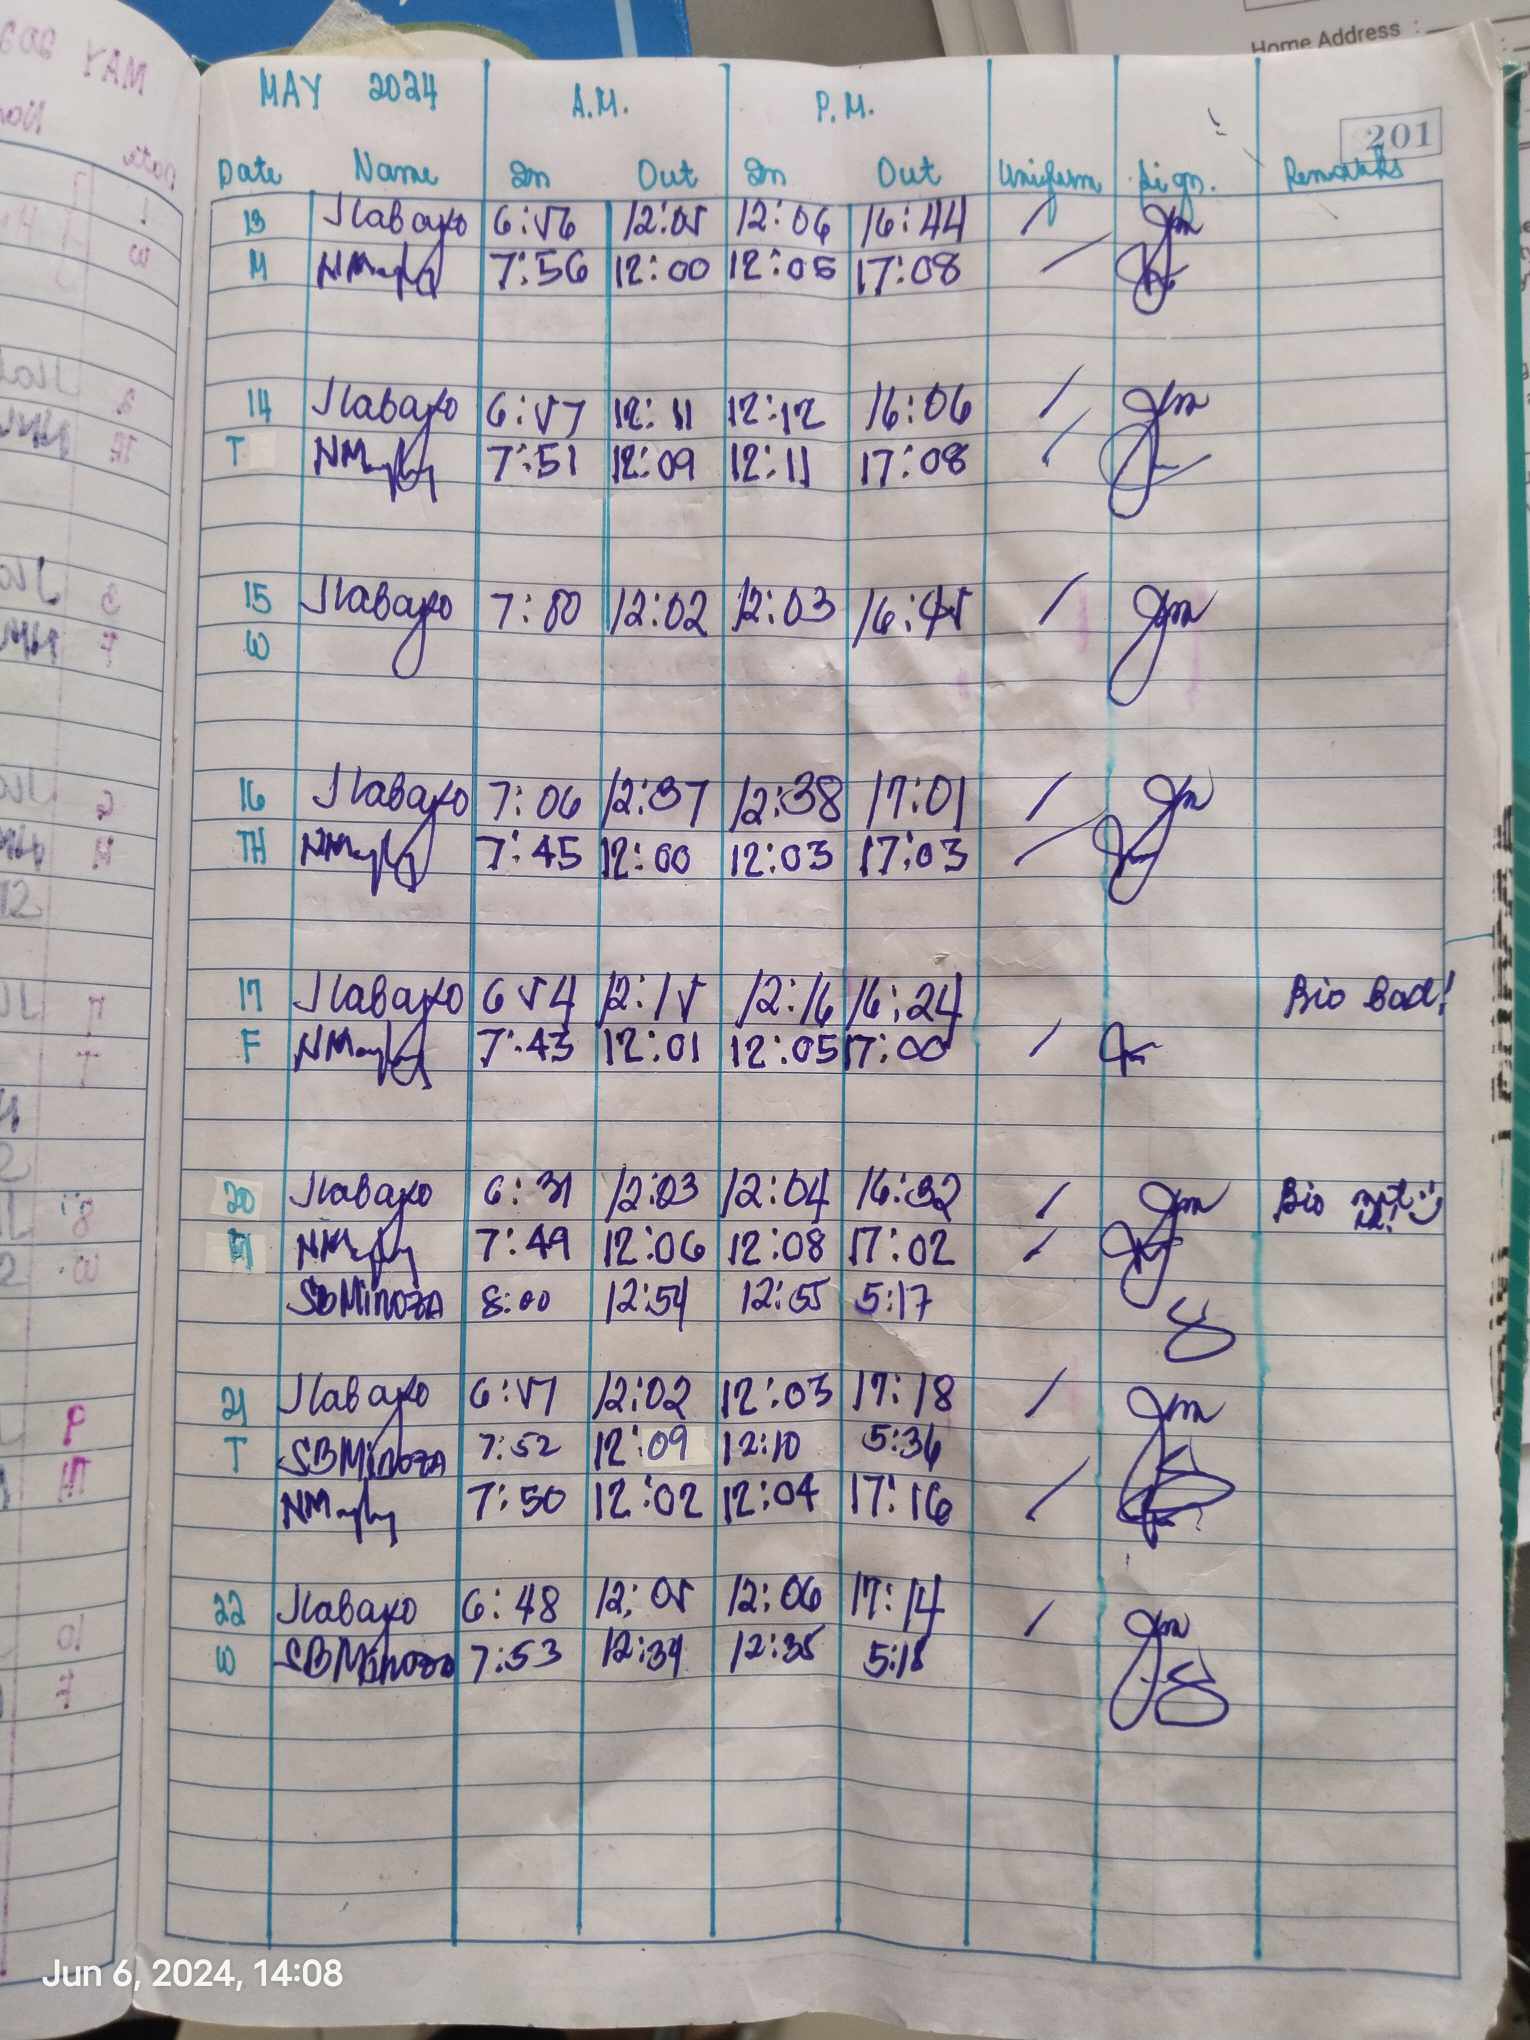 Home Address :
MAY 2024 A.M. P.M.
201
Date Name In Out In Out Uniform Sign. Remarks
13 Jlabayo 6:56 12:05 12:06 16:44 /
M 7:56 12:00 12:05 17:08 /
14 Jlabayo 6:57 12:11 12:12 16:06 /
T 7:51 12:09 12:11 17:08 /
15 Jlabayo 7:00 12:02 12:03 16:45 /
W
16 Jlabayo 7:06 12:37 12:38 17:01 /
TH 7:45 12:00 12:03 17:03 /
17 Jlabayo 6 54 12:15 12:16 16:24 Bio Bad!
F 7:43 12:01 12:05 17:00 /
20 Jlabayo 6:31 12:03 12:04 16:32 / Bio
7:49 12:06 12:08 17:02 /
SBMinoza 8:00 12:54 12:55 5:17
21 Jlabayo 6:57 12:02 12:03 17:18 /
T SBMinoza 7:52 12:09 12:10 5:36
7:50 12:02 12:04 17:16 /
22 Jlabayo 6:48 12:05 12:06 17:14 /
W SBMinoza 7:53 12:34 12:35 5:18
Jun 6, 2024, 14:08